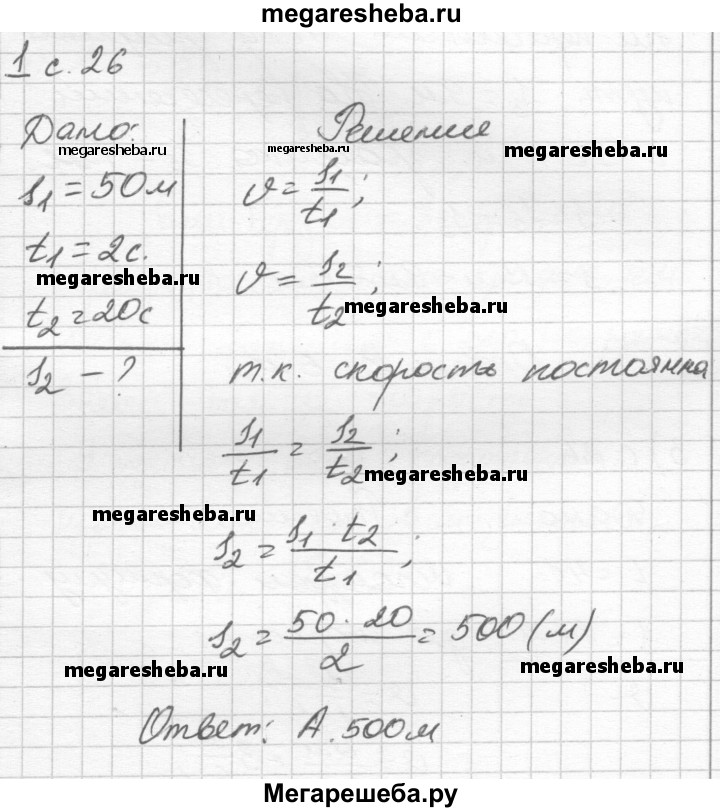 megaresheba.ru
1 с. 26
Дано:
megaresheba.ru
s1 = 50 м
t1 = 2 с.
megaresheba.ru
t2 = 20 с
s2 - ?
Решение
megaresheba.ru
megaresheba.ru
υ = s1/t1;
υ = s2/t2;
megaresheba.ru
т.к. скорость постоянна
s1/t1 = s2/t2;
megaresheba.ru
megaresheba.ru
s2 = s1 · t2/t1;
s2 = 50 · 20/2 = 500 (м)
megaresheba.ru
megaresheba.ru
Ответ: А. 500 м
megaresheba.ru
Мегарешеба.ру